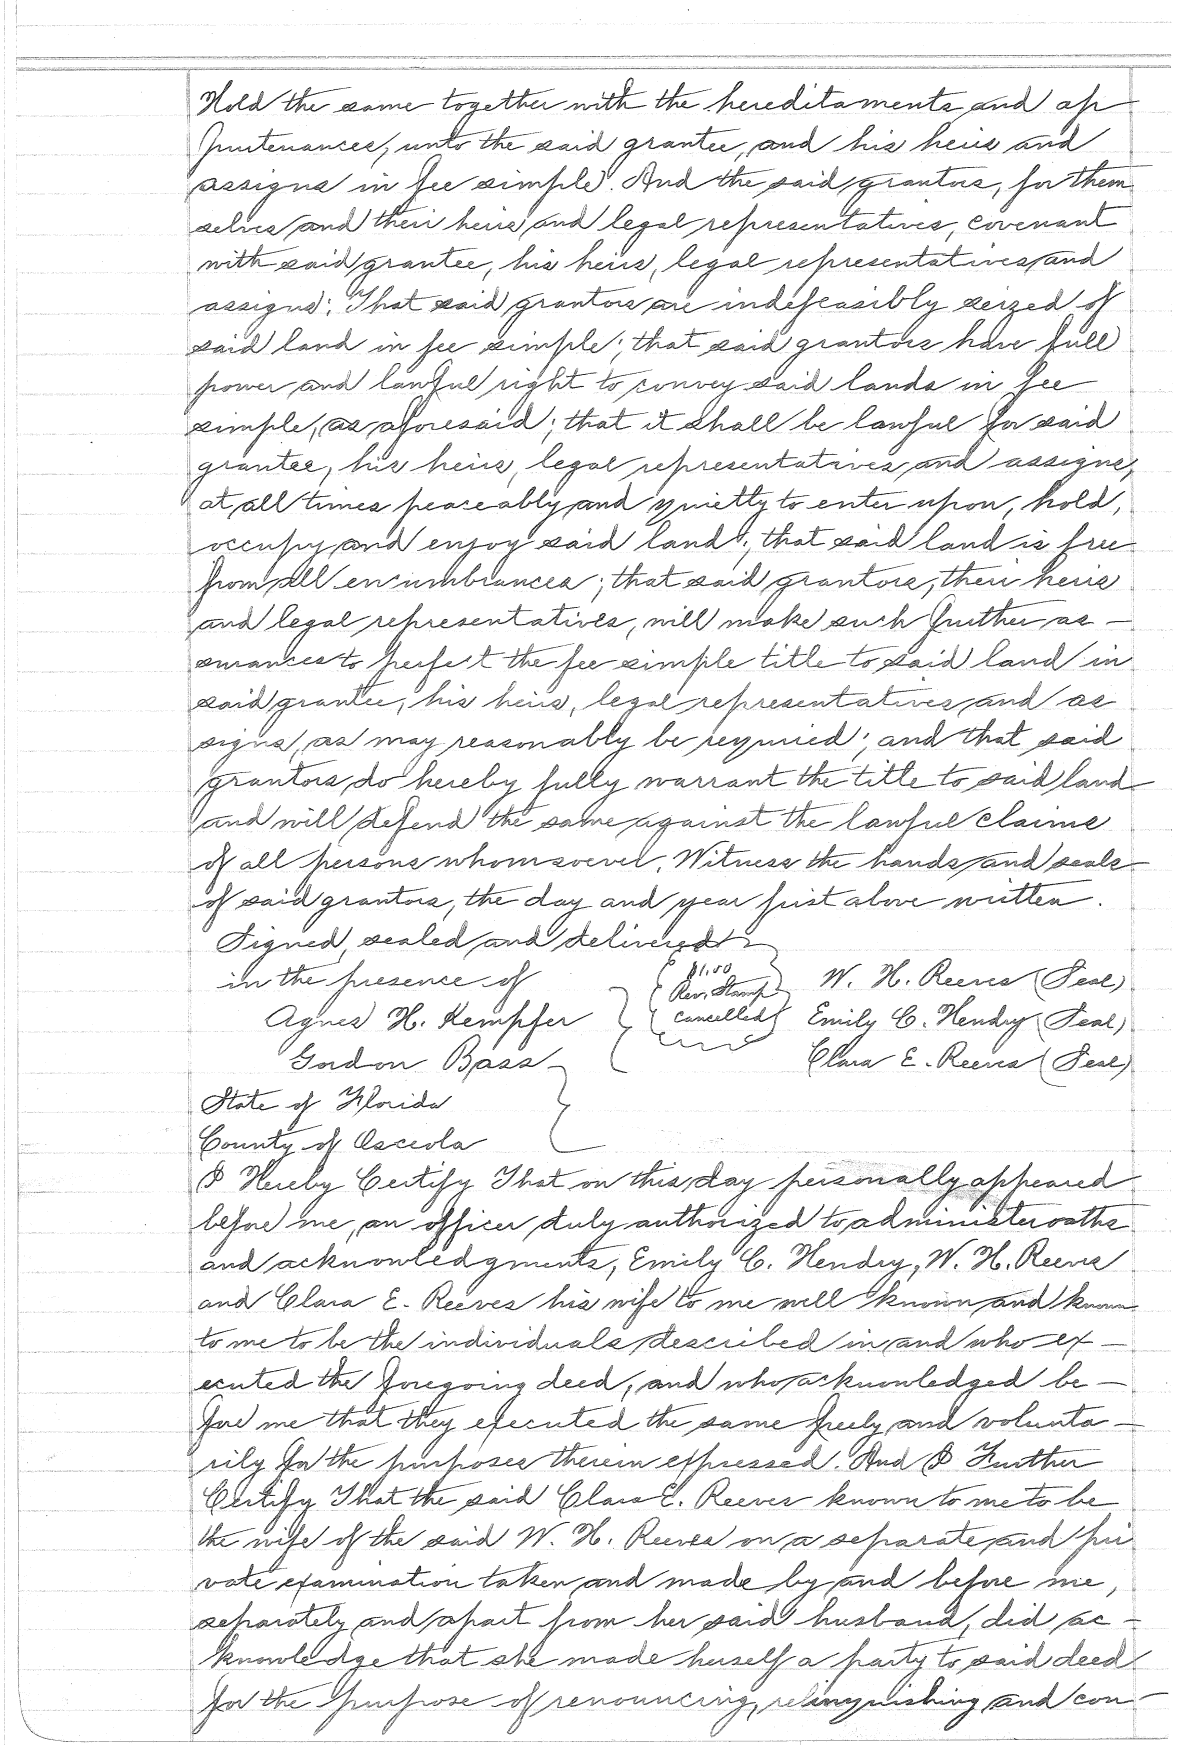 Hold the same together with the hereditaments and ap
purtenances, unto the said grantee, and his heirs and
assigns in fee simple. And the said grantors, for them
selves and their heirs and legal representatives, covenant
with said grantee, his heirs, legal representatives and
assigns: That said grantors are indefeasibly seized of
said land in fee simple; that said grantors have full
power and lawful right to convey said lands in fee
simple, as aforesaid; that it shall be lawful for said
grantee, his heirs, legal representatives and assigns,
at all times peaceably and quietly to enter upon, hold,
occupy and enjoy said land; that said land is free
from all encumbrances; that said grantors, their heirs
and legal representatives, will make such further as-
surances to perfect the fee simple title to said land in
said grantee, his heirs, legal representatives and as
signs, as may reasonably be required; and that said
grantors do hereby fully warrant the title to said land
and will defend the same against the lawful claims
of all persons whomsoever. Witness the hands and seals
of said grantors, the day and year first above written.
Signed, sealed and delivered
in the presence of
Agnes H. Kempfer
Gordon Bass
$1.00
Rev. Stamp
cancelled
W. H. Reeves (Seal)
Emily C. Hendry (Seal)
Clara E. Reeves (Seal)
State of Florida
County of Osceola
I Hereby Certify That on this day personally appeared
before me, an officer duly authorized to administer oaths
and acknowledgments, Emily C. Hendry, W. H. Reeves
and Clara E. Reeves his wife to me well known and known
to me to be the individuals described in and who ex-
ecuted the foregoing deed, and who acknowledged be-
fore me that they executed the same freely and volunta-
rily for the purposes therein expressed. And I Further
Certify That the said Clara E. Reeves known to me to be
the wife of the said W. H. Reeves on a separate and pri
vate examination taken and made by and before me,
separately and apart from her said husband, did ac-
knowledge that she made herself a party to said deed
for the purpose of renouncing, relinquishing and con-